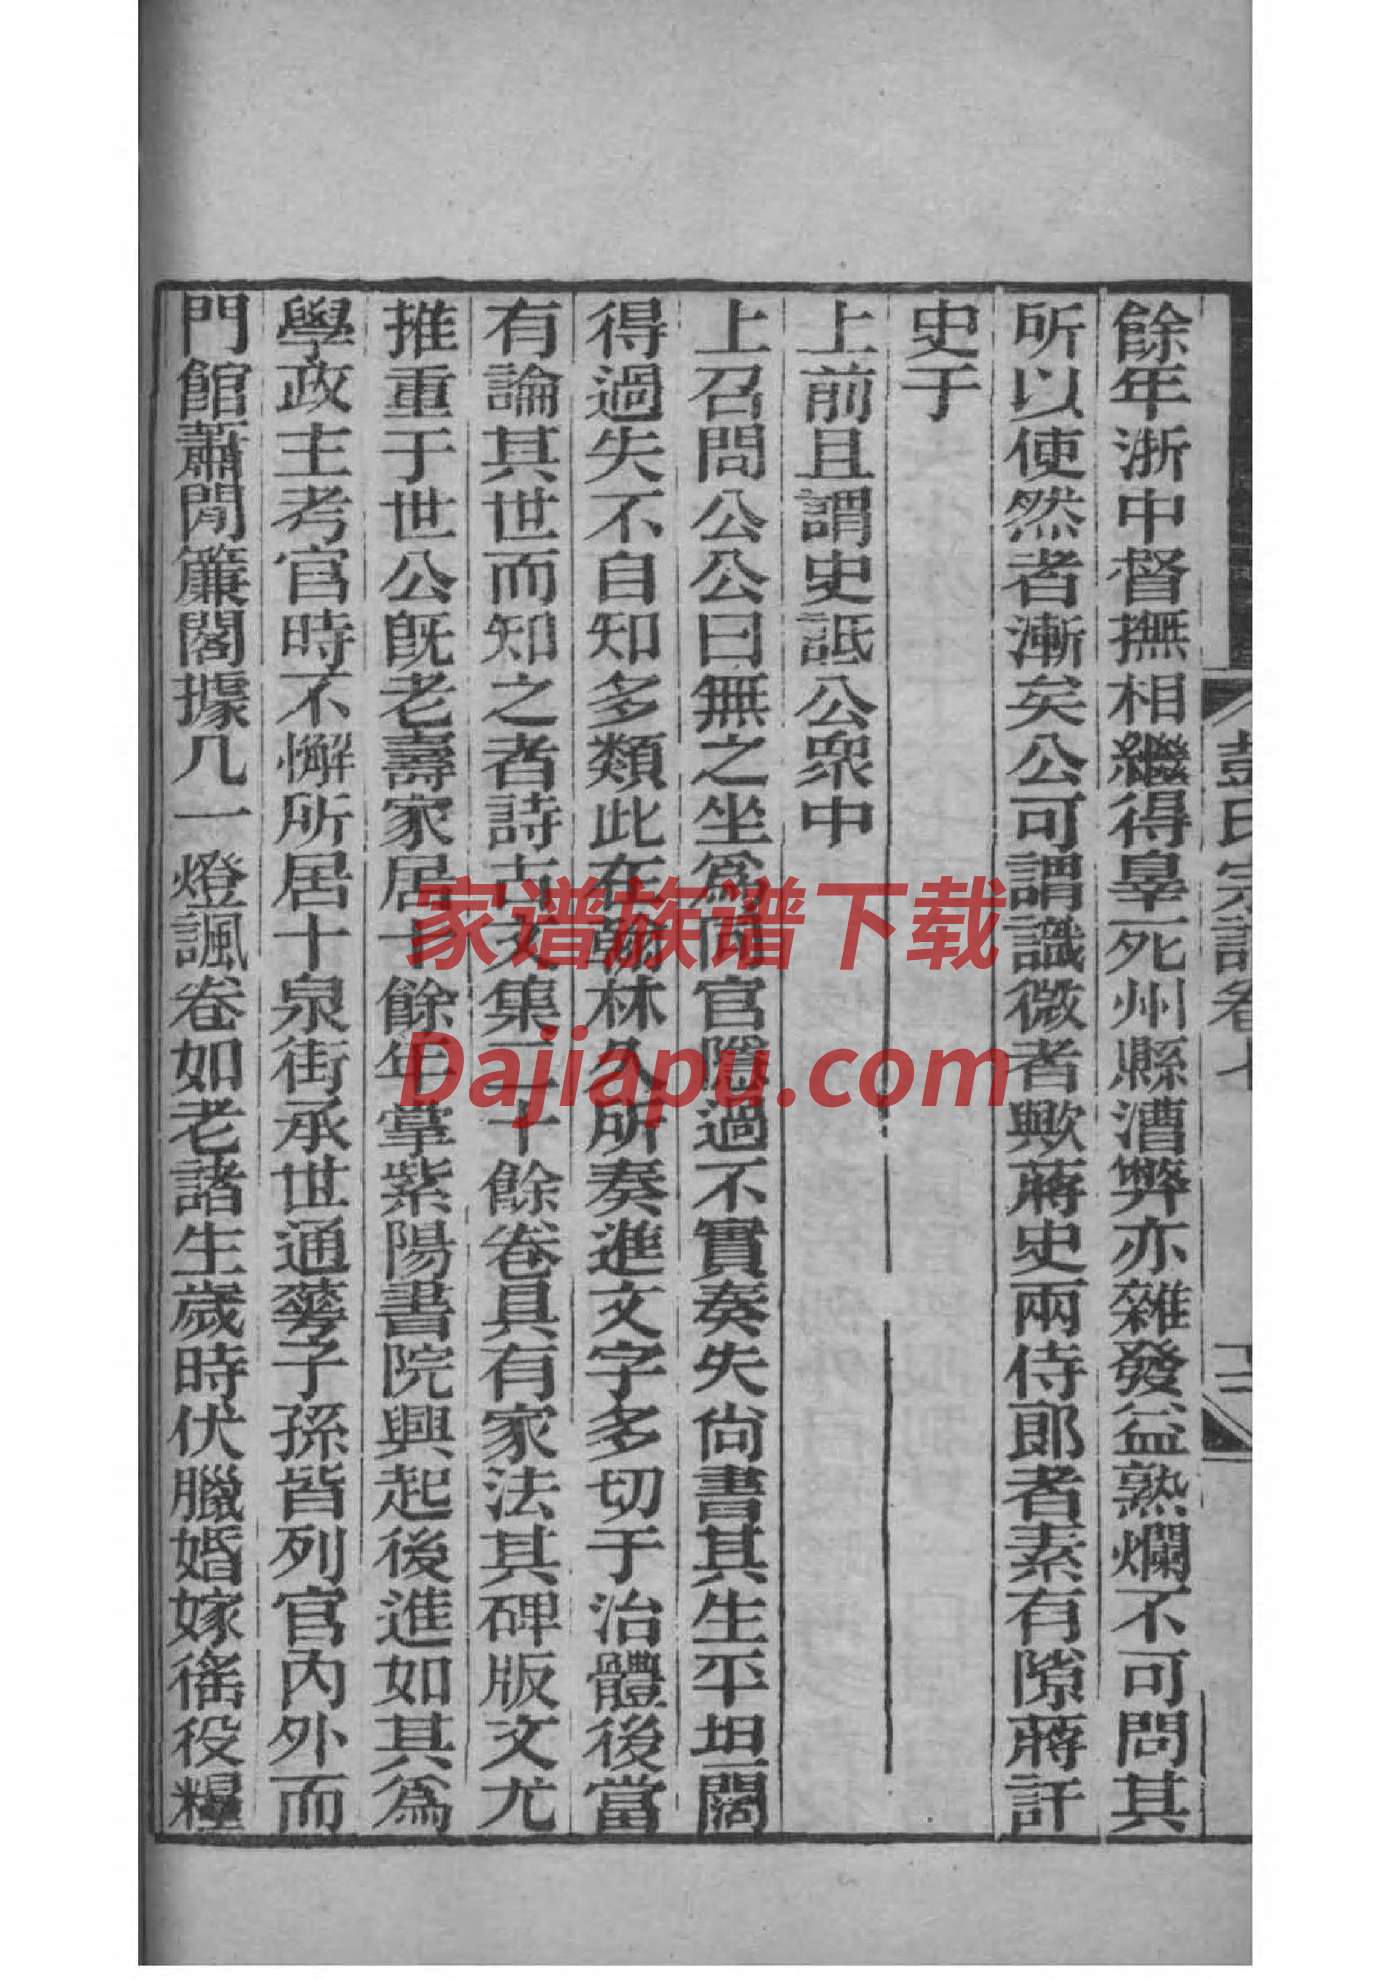 餘年浙中督撫相繼得辠死州縣漕弊亦雜發益熟爛不可問其
所以使然者漸矣公可謂識微者歟蔣史兩侍郎者素有隙蔣訐
史于
上前且謂史詆公眾中
上召問公公曰無之坐爲同官隱過不實奏失尙書其生平坦闊
得過失不自知多類此在翰林久所奏進文字多切于治體後當
有論其世而知之者詩古文集二十餘卷具有家法其碑版文尤
推重于世公旣老壽家居十餘年掌紫陽書院興起後進如其爲
學政主考官時不懈所居十泉街承世通㝈子孫皆列官內外而
門館蕭閒簾閣據几一燈諷卷如老諸生歲時伏臘婚嫁徭役糧
彭氏宗譜卷七
家谱族谱下载
Dajiapu.com